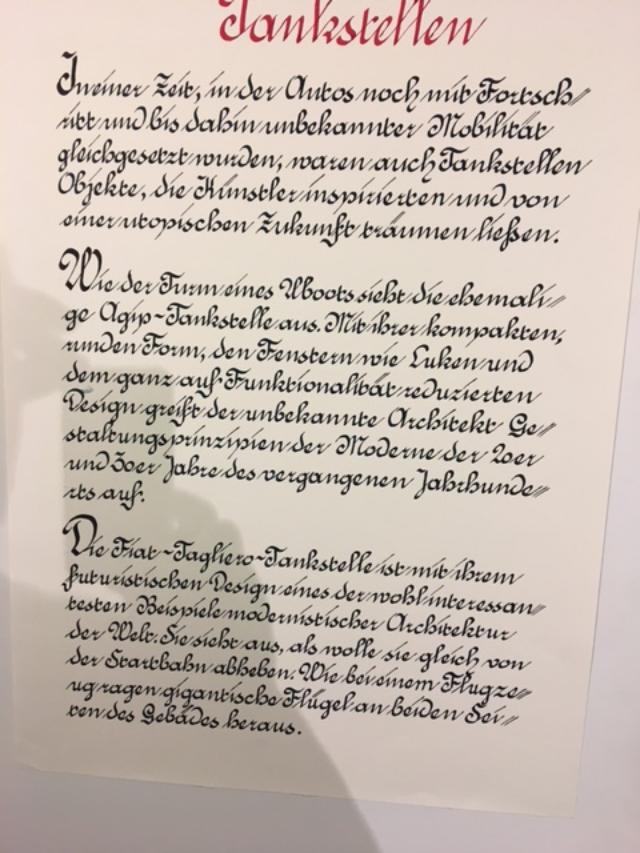 Tankstellen
In einer Zeit, in der Autos noch mit Fortsch//
ritt und bis dahin unbekannter Mobilität
gleichgesetzt wurden, waren auch Tankstellen
Objekte, die Künstler inspirierten und von
einer utopischen Zukunft träumen ließen.
Wie der Turm eines Uboots sieht die ehemali//
ge Agip-Tankstelle aus. Mit ihrer kompakten,
runden Form, den Fenstern wie Luken und
dem ganz auf Funktionalität reduzierten
Design greift der unbekannte Architekt Ge//
staltungsprinzipien der Moderne der 20er
und 30er Jahre des vergangenen Jahrhunde//
rts auf.
Die Fiat-Tagliero-Tankstelle ist mit ihrem
futuristischen Design eines der wohl interessan//
testen Beispiele modernistischer Architektur
der Welt. Sie sieht aus, als wolle sie gleich von
der Startbahn abheben. Wie bei einem Flugze//
ug ragen gigantische Flügel an beiden Sei//
ten des Gebädes heraus.